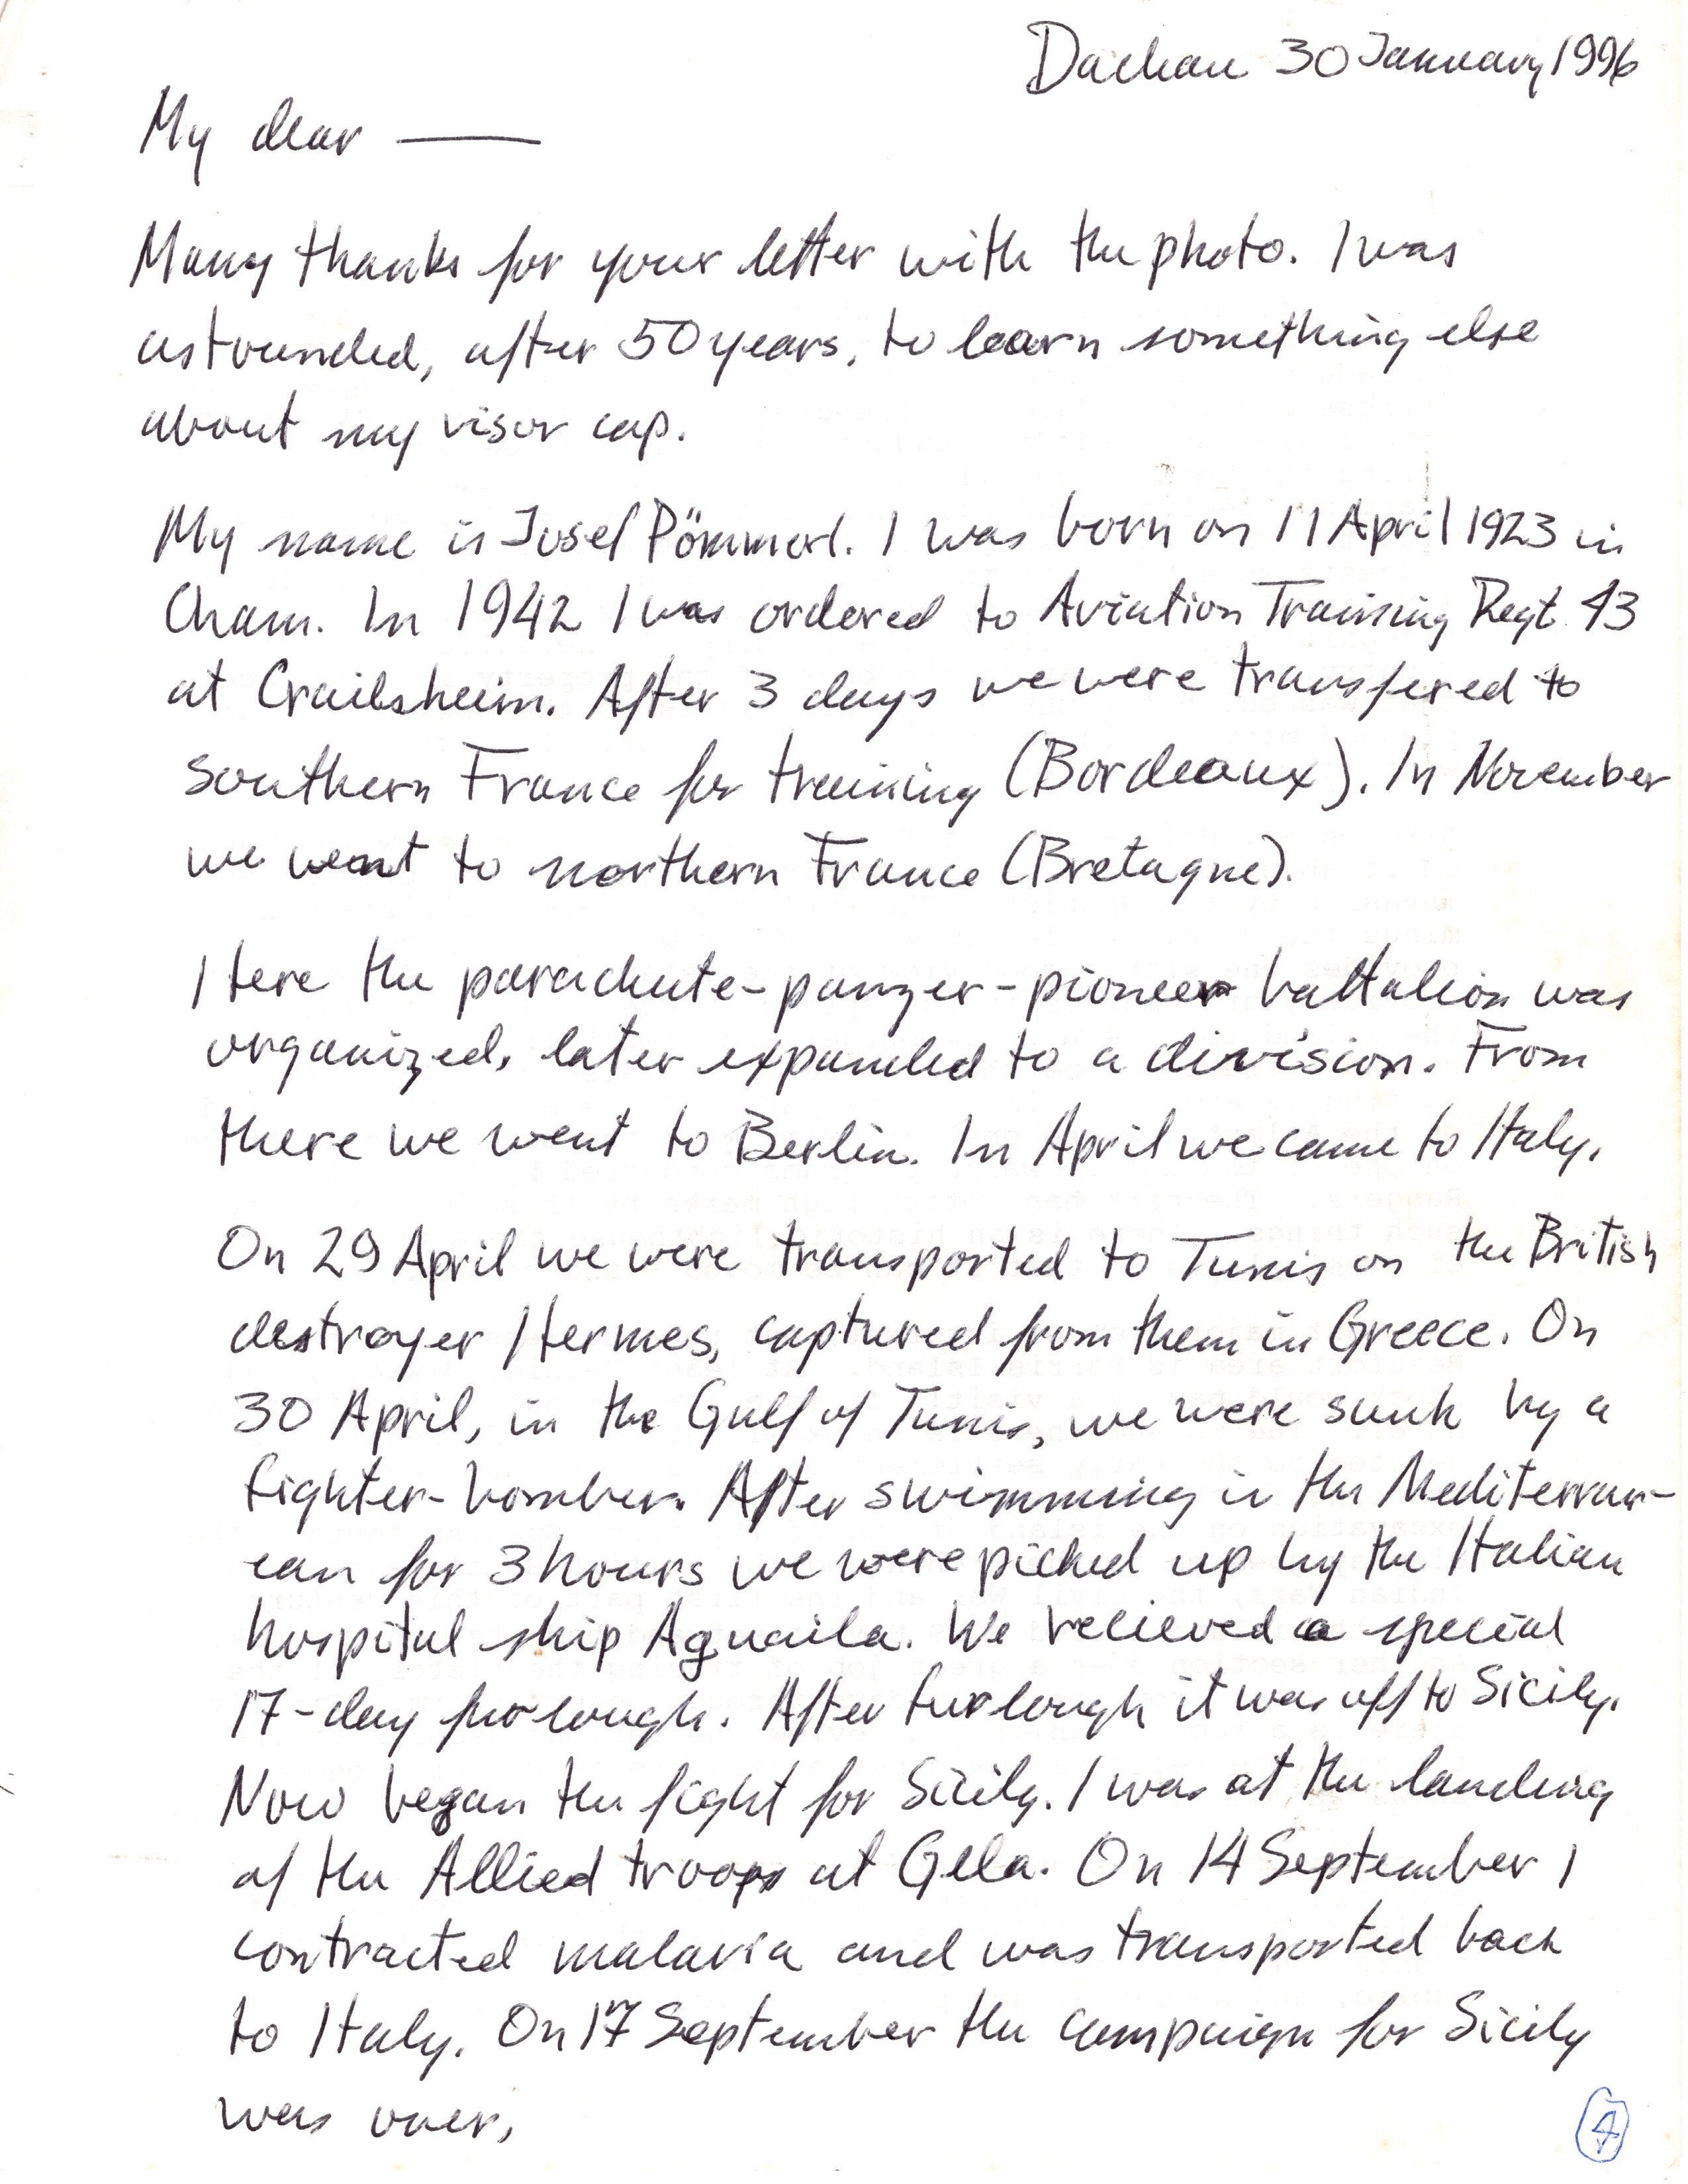 Dachau 30 January 1996
My dear ——
Many thanks for your letter with the photo. I was
astounded, after 50 years, to learn something else
about my visor cap.
My name is Josef Pömmerl. I was born on 11 April 1923 in
Cham. In 1942 I was ordered to Aviation Training Regt. 43
at Crailsheim. After 3 days we were transfered to
southern France for training (Bordeaux). In November
we went to northern France (Bretagne).
Here the parachute-panzer-pioneer battalion was
organized, later expanded to a division. From
there we went to Berlin. In April we came to Italy.
On 29 April we were transported to Tunis on the British
destroyer Hermes, captured from them in Greece. On
30 April, in the Gulf of Tunis, we were sunk by a
fighter-bomber. After swimming in the Mediterran-
ean for 3 hours we were picked up by the Italian
hospital ship Aguaila. We recieved a special
17-day furlough. After furlough it was off to Sicily.
Now began the fight for Sicily. I was at the landing
of the Allied troops at Gela. On 14 September I
contracted malaria and was transported back
to Italy. On 17 September the campaign for Sicily
was over,